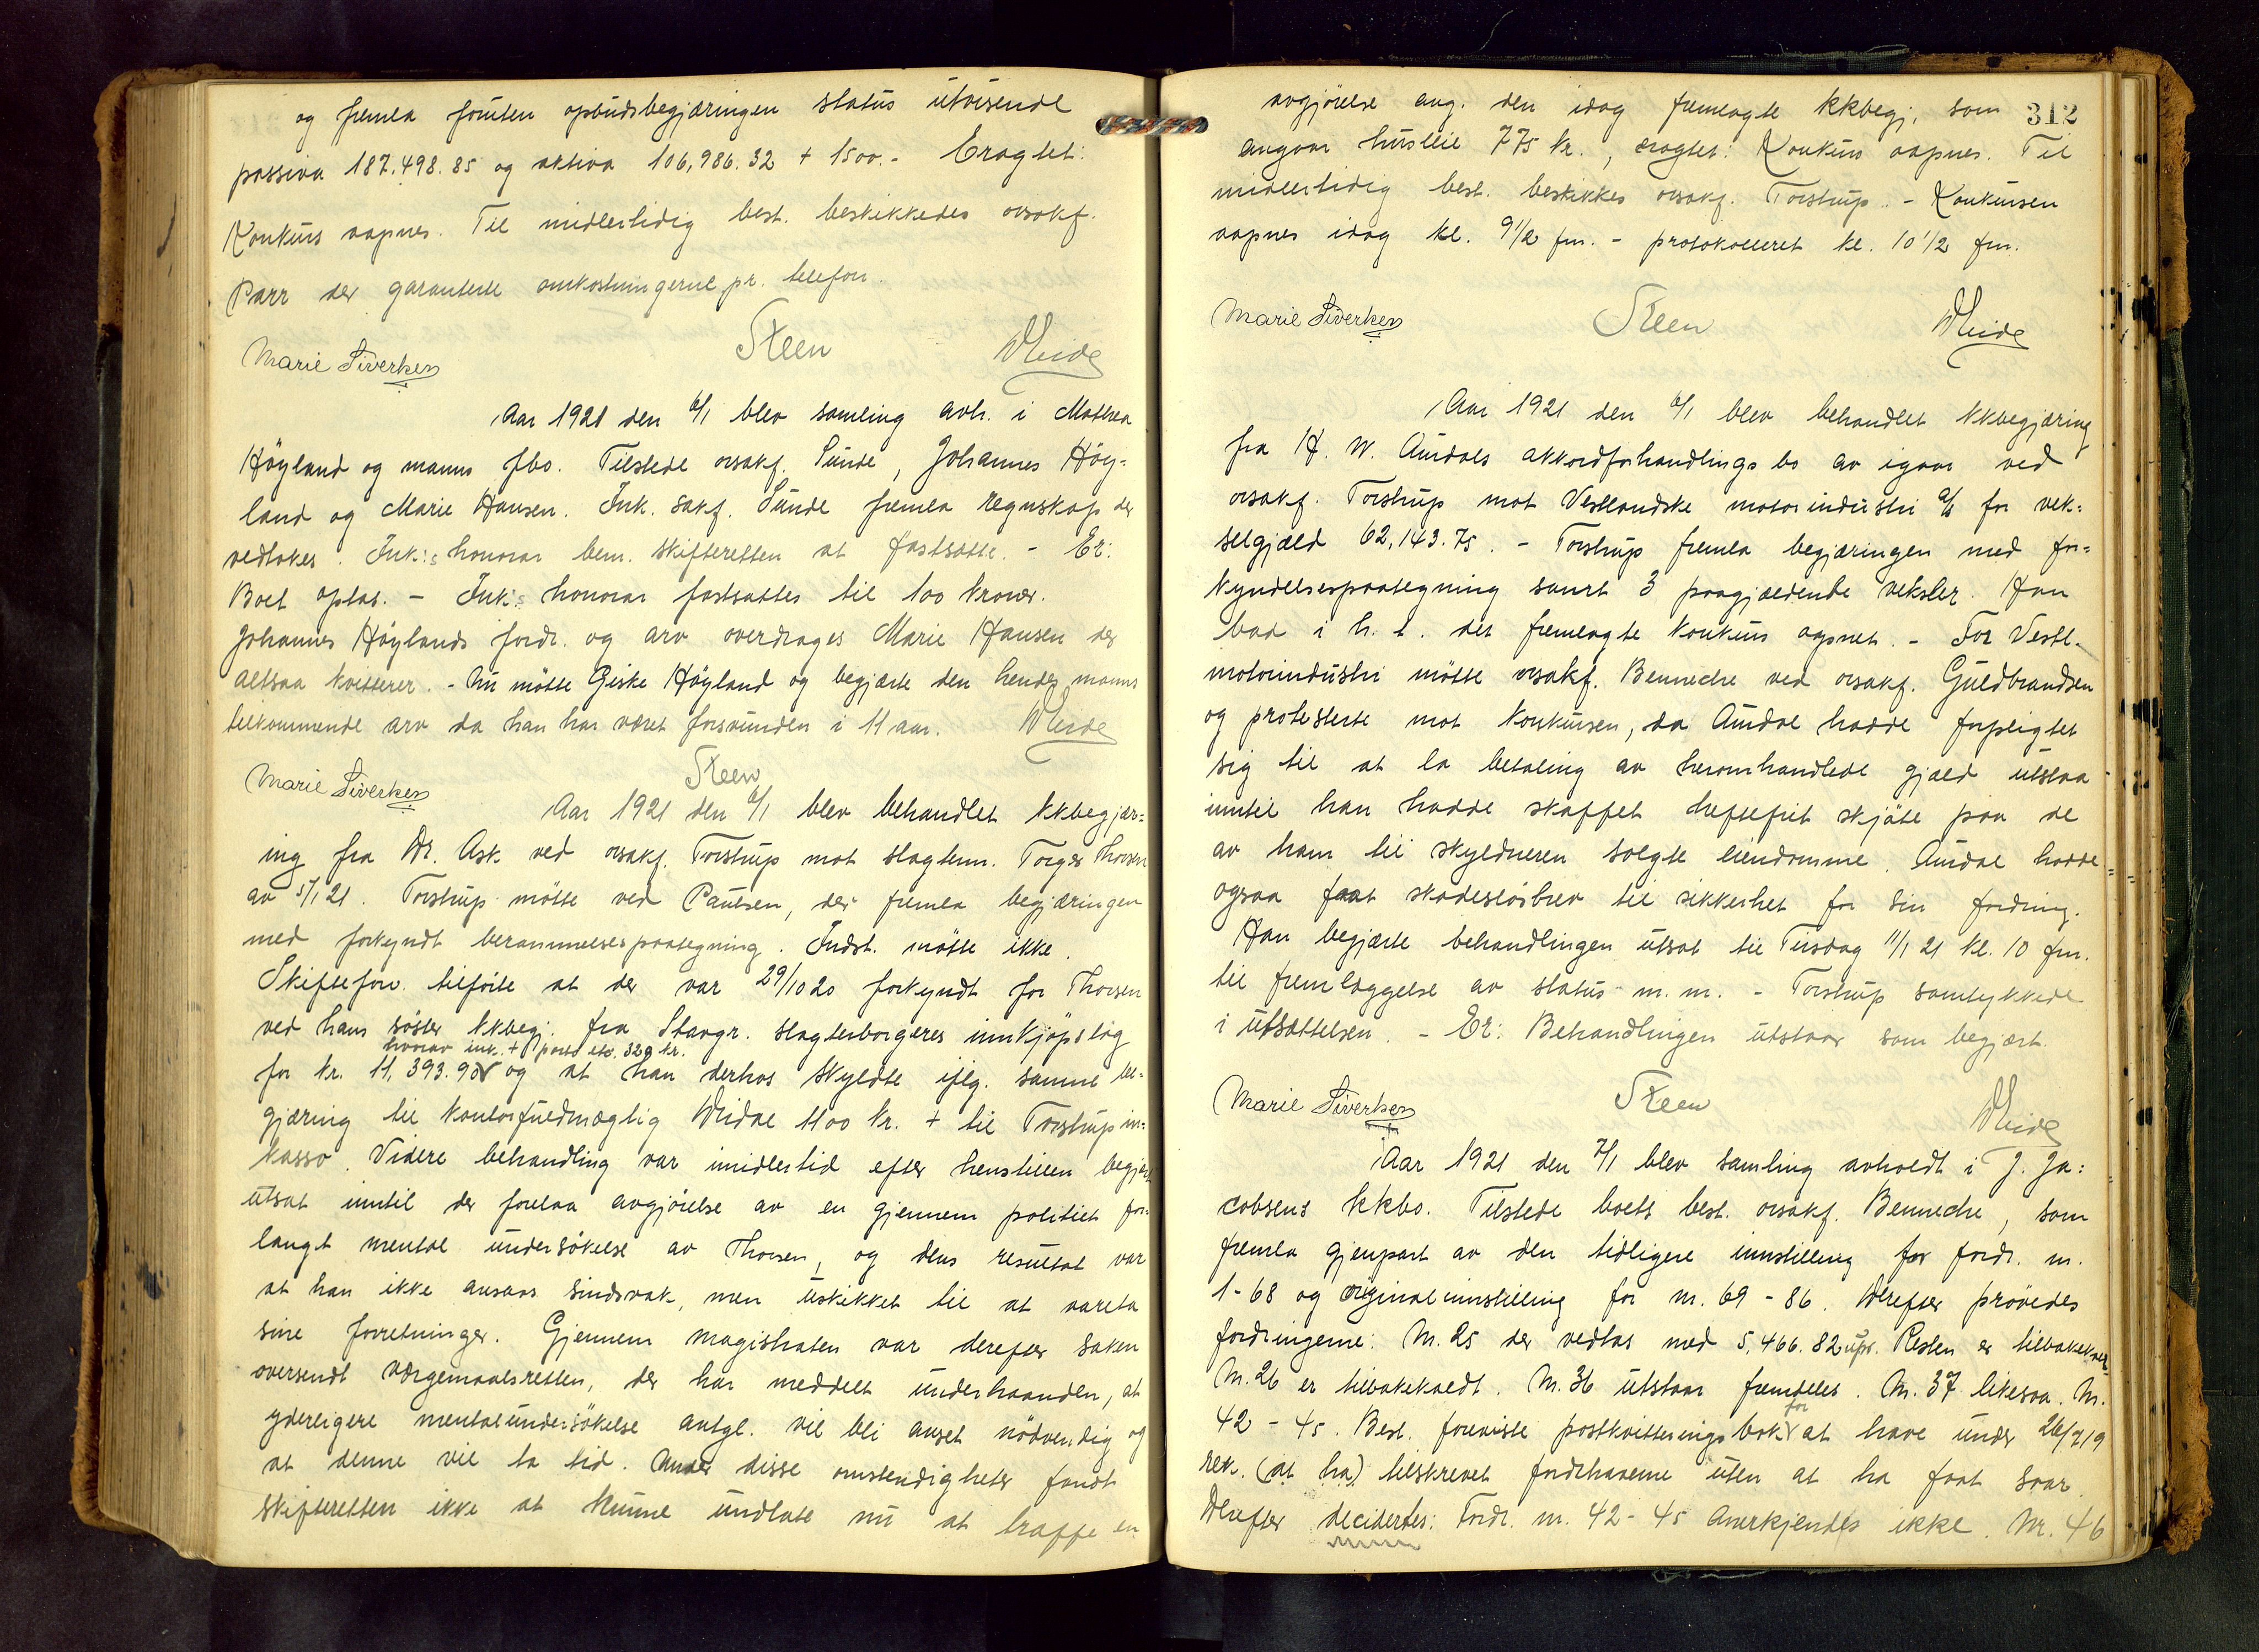 og fremla foruten opbudsbegjæringen status utvisende
passiva 187.498.85 og aktiva 106,986.32 + 1500.- Eragtet:
Konkurs aapnes. Til midlertidig best. beskikkedes orsakf.
Parr der garanterte omkostningerne pr. telefon.
Marie Siverken Steen Weide
Aar 1921 den 6/1 blev samling avh. i Mathea
Höyland og manns fbo. Tilstede orsakf. Sunde, Johannes Höy-
land og Marie Hansen. Ink. sakf. Sunde fremla regnskap der
vedtokes. Ink.'s honorar bem. skifteretten at fastsætte. - Er:
Boet optat. - Ink.'s honorar fastsattes til 100 kroner.
Johannes Höylands fordr. og arv overdrages Marie Hansen der
altsaa kvitterer. - Nu mötte Giske Höyland og begjærte den hendes manns
tilkommende arv da han har været forsvunden i 11 aar. Weide
Marie Siverken Steen
Aar 1921 den 6/1 blev behandlet kkbegjær=
ing fra Dr. Ask ved orsakf. Torstrup mot slagterm. Torger Thorsen
av 5/1 21. Torstrup mötte ved Paulsen, der fremla begjæringen
med forkyndt berammelsespaategning. Indst. mötte ikke.
Skiftefor. tilförte at der var 29/10 20 forkyndt for Thorsen
ved hans söster kkbegj. fra Stavgr. slagterborgeres innkjöpslag
hvorav ink. + porto etc. 329 kr.
for kr. 11,393.90 og at han derhos skyldte iflg. samme be-
gjæring til kontorfuldmægtig Weidal 1100 kr. + til Torstrup in=
kasso. Videre behandling var imidlertid efter henstillen begjært
utsat inntil der forelaa avgjörelse av en gjennem politiet for-
langt mental undersökelse av Thorsen, og dens resultat var
at han ikke ansaas sindsvak, men uskikket til at vareta
sine forretninger. Gjennem magistraten var derefter saken
oversendt værgemaalsretten, der har meddelt underhaanden, at
yderligere mentalundersökelse antgl. vil bli anset nödvendig og
at denne vil ta tid. Under disse omstendigheter fandt
skifteretten ikke at kunne undlate nu at træffe en
312
avgjörelse ang. den idag fremlagte kkbegj. som
angaar husleie 775 kr., eragtet: Konkurs aapnes. Til
midlertidig best. beskikkes orsakf. Torstrup. - Konkursen
aapnes idag kl. 9 1/2 fm. - protokolleret kl. 10 1/2 fm.
Marie Siverken Steen Weide
Aar 1921 den 6/1 blev behandlet kkbegjæring
fra H. W. Aurdals akkordforhandlings bo av igaar ved
orsakf. Torstrup mot Vestlandske motorindustri a/s for vek=
selgjæld 62,143.75. - Torstrup fremla begjæringen med for=
kyndelsespaategning samt 3 paagjældende veksler. Han
bad i h. t. det fremlagte konkurs apnet. - For Vestl.
motorindustri mötte orsakf. Benneche ved orsakf. Guldbrandsen
og protesterte mot konkursen, da Aurdal hadde forpligtet
sig til at la betaling av heromhandlede gjæld utstaa
inntil han hadde skaffet heftefrit skjöte paa de
av ham til skyldneren solgte eiendomme. Aurdal hadde
ogsaa faat skadeslösbrev til sikkerhet for sin fordring.
Han begjærte behandlingen utsat til Tirsdag 11/1 21 kl. 10 fm.
til fremlæggelse av status m. m. - Torstrup samtykkede
i utsættelsen. - Er: Behandlingen utstaar som begjært.
Marie Siverken Steen Weide
Aar 1921 den 7/1 blev samling avholdt i J. Ja=
cobsens kkbo. Tilstede boets best. orsakf. Benneche, som
fremla gjenpart av den tidligere innstilling for fordr. nr.
1-68 og originalinnstilling for nr. 69 - 86. Derefter prövedes
fordringerne: Nr. 25 der vedtas med 5,466.82 upr. Resten er tilbakekaldt
Nr. 26 er tilbakekaldt. Nr. 36 utstaar fremdeles. Nr. 37 likesaa. Nr.
42 - 45. Best. foreviste postkvitteringsbok for at have under 26/7 19
rek. (at ha) tilskrevet fordrhaverne uten at ha faat svar.
Derefter decidertes: Fordr. nr. 42 - 45 anerkjendes ikke. Nr. 46